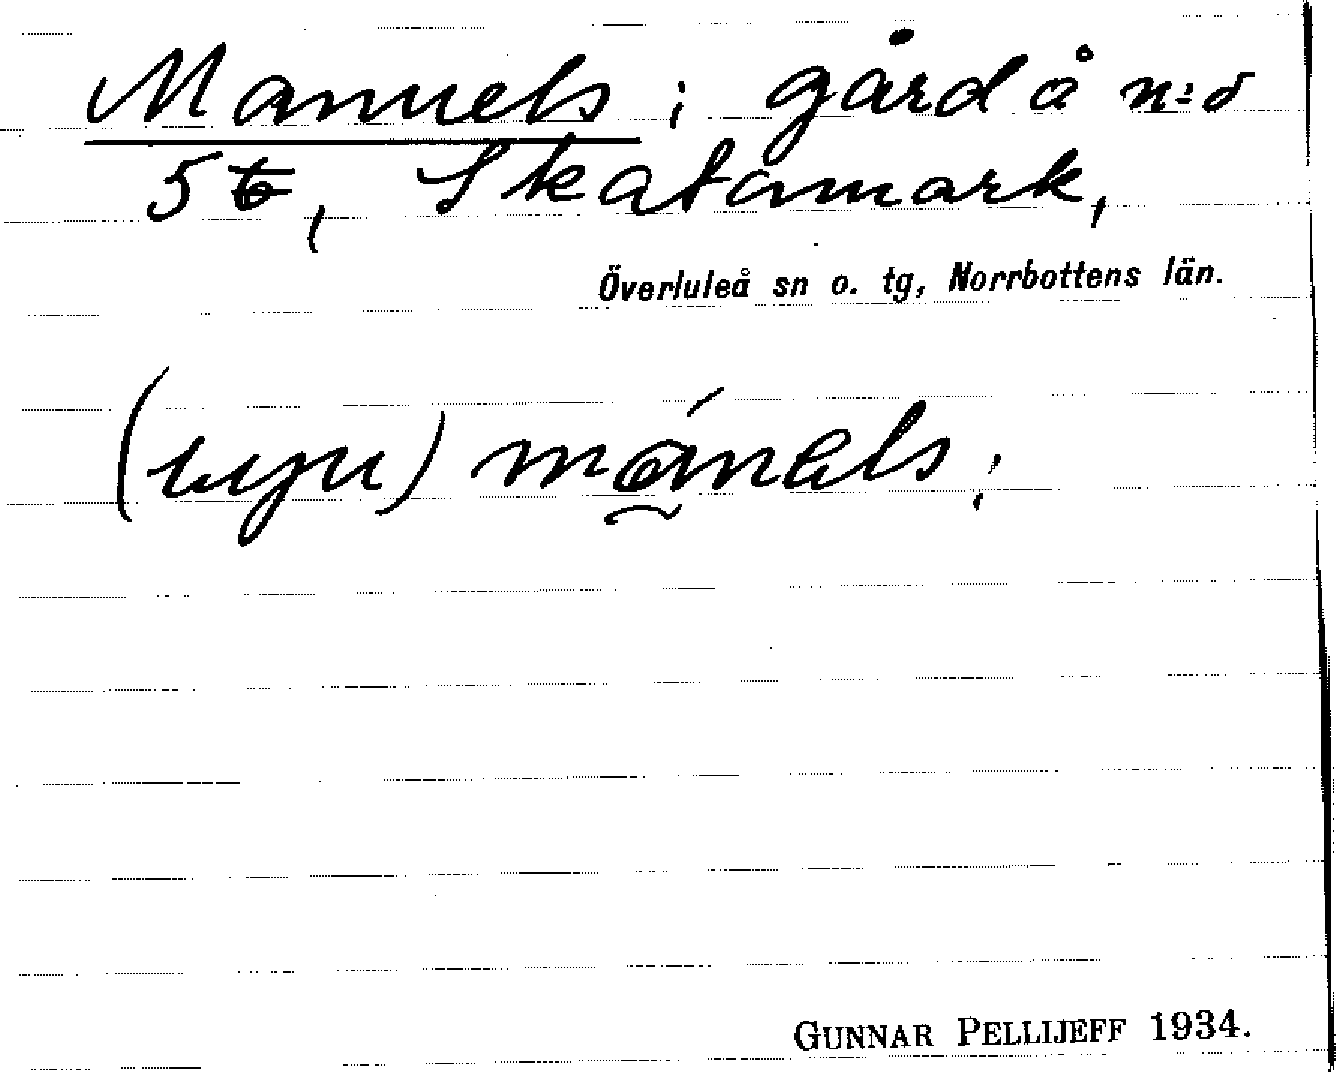 Manuels; gård å n:o
5, Skatamark,
Överluleå sn o. tg, Norrbottens län.
(uyu) mánəls;
GUNNAR PELLIJEFF 1934.